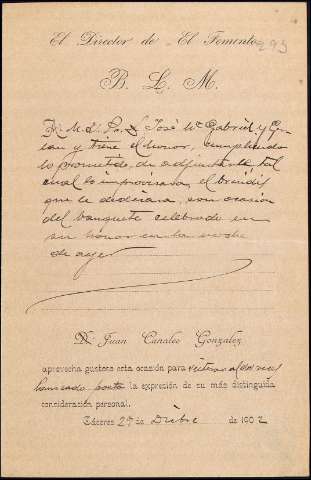 El Director de "El Fomento" 295
B. L. M.
A. M. I. Sr. D. José Mª Gabriel y Ga-
lan y tiene el honor, cumpliendo
lo prometido, de adjuntarle tal
cual lo improvisara, el brindis
que le dedicara, con ocasion
del banquete celebrado en
su honor en la noche
de ayer
D. Juan Canales Gonzalez
aprovecha gustoso esta ocasión para reiterar al
poeta la expresión de su más distinguida
consideración personal.
Cáceres 27 de Dicbre de 1902